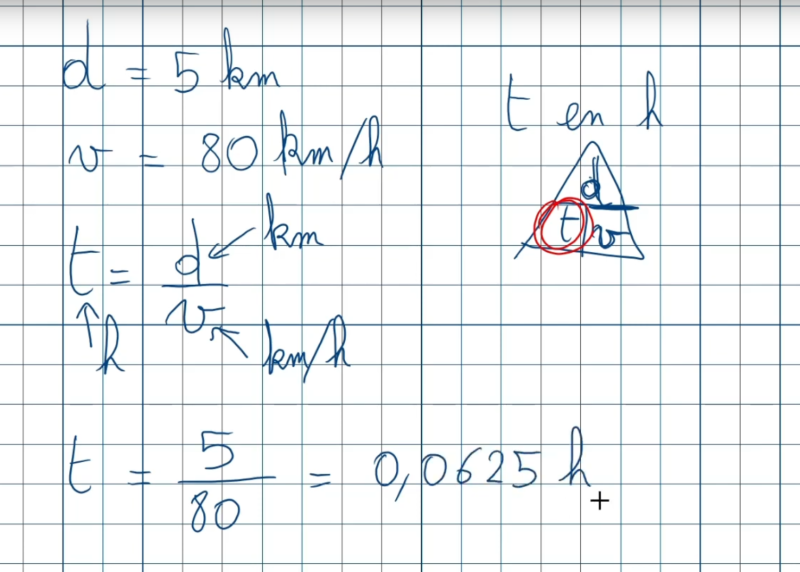 d = 5 km
v = 80 km/h
t = d/v
km
h
km/h
t en h
d
t v
t = 5/80 = 0,0625 h